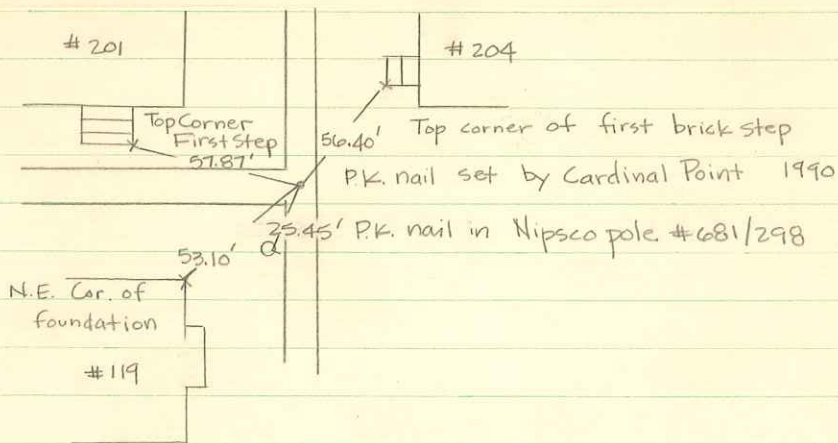 # 201
# 204
Top Corner
First Step
57.87'
56.40'
Top corner of first brick step
P.K. nail set by Cardinal Point 1990
25.45' P.K. nail in Nipsco pole #681/298
53.10'
N.E. Cor. of
foundation
#119